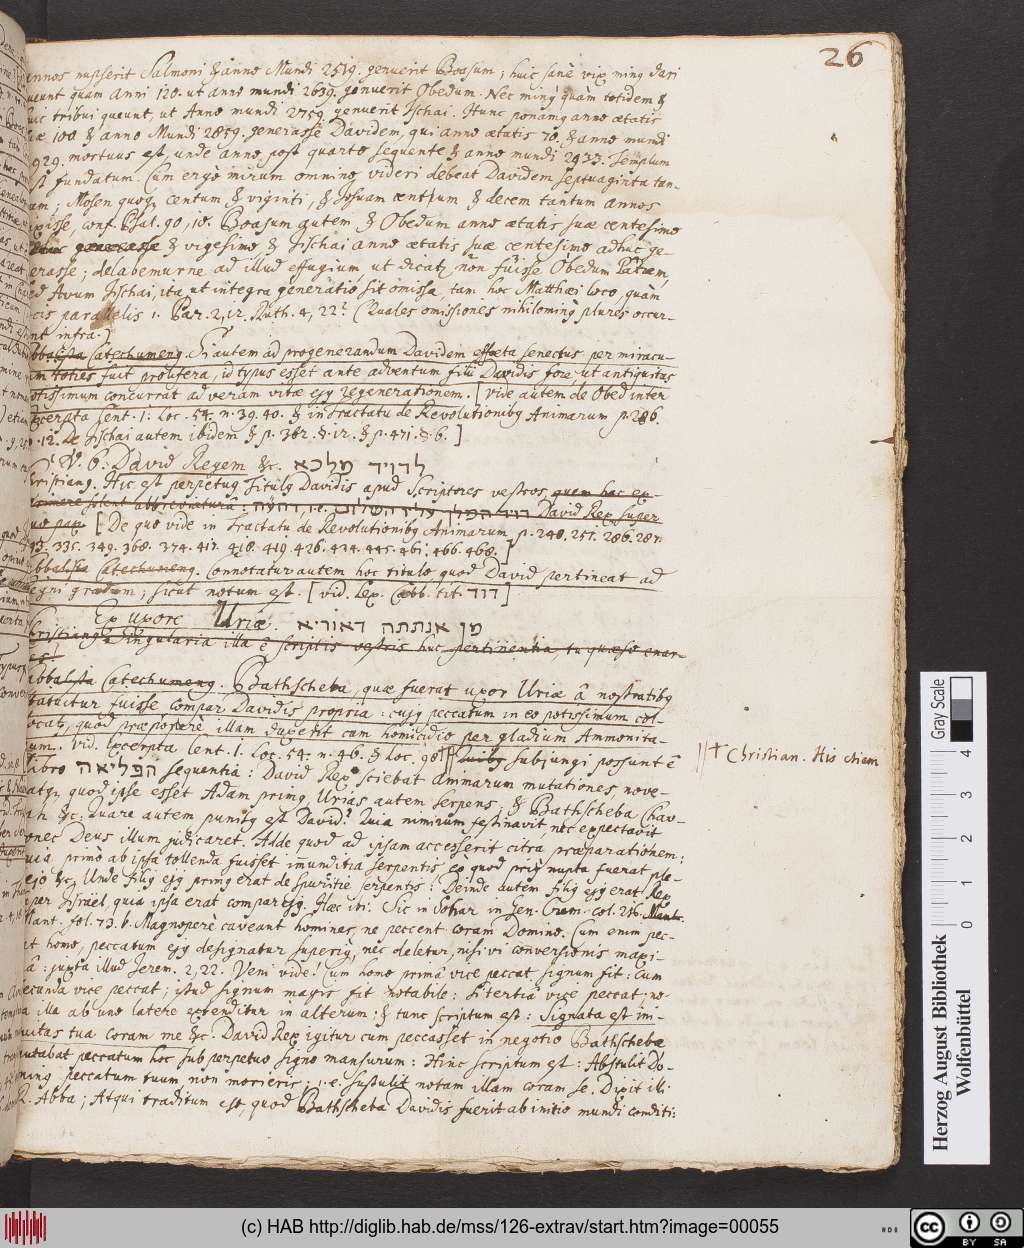 26
annos nupserit Salmoni & anno Mundi 2519. genuerit Boasum; huic sanè vix minq dari
queunt quam anni 120. ut anno mundi 2639. genuerit Obedum. Nec minq quàm totidem &
huic tribui queunt, ut Anno mundi 2759. genuerit Jschai. Hunc ponamq anno ætatis
suæ 100. & anno Mundi 2859. generasse Davidem, qui anno ætatis 70. & anno mundi
2929. mortuus est, unde anno post quarto sequente & anno mundi 2933. Templum
est fundatum. Cum ergò mirum omnino videri debeat Davidem septuaginta tan-
tum; Mosen quoq centum & viginti, & Josuam centum & decem tantum annos
vixisse, conf. Psal. 90, 10. Boasum autem & Obedum anno ætatis suæ centesimo
generasse & vigesimo & Jischai anno ætatis suæ centesimo adhuc ge-
nerasse; delabemurne ad illud effugium ut dicatz, non fuisse Obedum Patrem,
sed Avum Jischai, ita ut integra generatio sit omissa, tam hoc Matthæi loco, quàm
locis parallelis 1. Par. 2, 12. Ruth. 4, 22? (Quales omissiones nihilominq plures occur-
rent infra.)
Cabbalista Catechumenq. Si autem ad progenerandum Davidem effœta senectus per miracu-
lum toties fuit prolifera, id typus esset ante adventum filii Davidis fore ut antiquitas
potissimum concurrat ad veram vitæ ejq regenerationem. [vide autem de Obed inter
Excerpta Cent. 1. loc. 54. n. 39. 40. & in tractatu de Revolutionibq Animarum p. 286.
§. 12. De Jischai autem ibidem & p. 362. §. 12. & p. 471. §. 6.]
V. 6. David Regem &c. לדויד מלכא
Christianq. Hic est perpetuq Titulq Davidis apud Scriptores vestros, quem hac ex-
primere solent abbreviatura רהע״ה, i.e. דויד המלך עליו השלום David Rex super
quo pax [De quo vide in Tractatu de Revolutionibq Animarum p. 248. 257. 286. 287.
335. 349. 368. 374. 417. 418. 419. 426. 434. 445. 461. 466. 468.]
Cabbalista Catechumenq. Connotatur autem hoc titulo quod David pertineat ad
Regni gradum; sicut notum est. [vid. Lex. Cabb. tit. דוד]
Ex uxore Uriæ. מן אנתתה דאוריא
Christianq Singularia illa è scriptis vestris huc pertinentia, tu quæso enar-
Cabbalista Catechumenq. Bathscheba, quæ fuerat uxor Uriæ â nostratibq
statuitur fuisse compar Davidis propria: cujq peccatum in eo potissimum col-
locatz, quod præproperè illam duxerit cum homicidio per gladium Ammonita-
rum. vid. Excerpta Cent. 1. Loc. 54. n. 46. & Loc. 98 Quibq subjungi possunt è
libro הפליאה sequentia: David Rex sciebat animarum mutationes, nove-
ratq quod ipse esset Adam primq, Urias autem serpens, & Bathscheba Chav-
ah. &c. Quare autem punitq est David? Quia nimirum festinavit, nec expectavit
donec Deus illum judicaret. Adde quod ad ipsam accesserit citra præparationem;
quia primò ab ipsâ tollenda fuisset immunditia serpentis eò quod priq nupta fuerat ple-
bejo &c. Unde filiq ejq primq erat de spuritie serpentis: Deinde autem filiq ejq erat Rex
super Jsraël, quia ipsa erat compar ejq. Hæc ibi. Sic in Sohar in Gen. Crem. col. 216.
Mant. fol. 73. b. Magnoperè caveant homines, ne peccent coram Domino. Cum enim pec-
cat homo, peccatum ejq designatur superiq, nec deletur, nisi vi conversionis maxi-
mâ: juxta illud Jerem. 2, 22. Veni vide! Cum homo primâ vice peccat signum fit: Cum
secunda vice peccat; istud signum magis fit notabile: Si tertiâ vice peccat; no-
ta illa ab uno latere extenditur in alterum; & tunc scriptum est: Signata est ini-
quitas tua coram me &c. David Rex igitur cum peccasset in negotio Bathschebæ
putabat peccatum hoc sub perpetuo signo mansurum: Hinc scriptum est: Abstulit Do-
minq peccatum tuum non morieris; i.e. sustulit notam illam coram se. Dixit illi
R. Abba; Atqui traditum est, quod Bathscheba Davidis fuerit ab initio mundi conditi:
Christian. His etiam
Herzog August Bibliothek
Wolfenbüttel
Gray Scale
0 1 2 3 4
(c) HAB http://diglib.hab.de/mss/126-extrav/start.htm?image=00055
HAB
cc BY SA